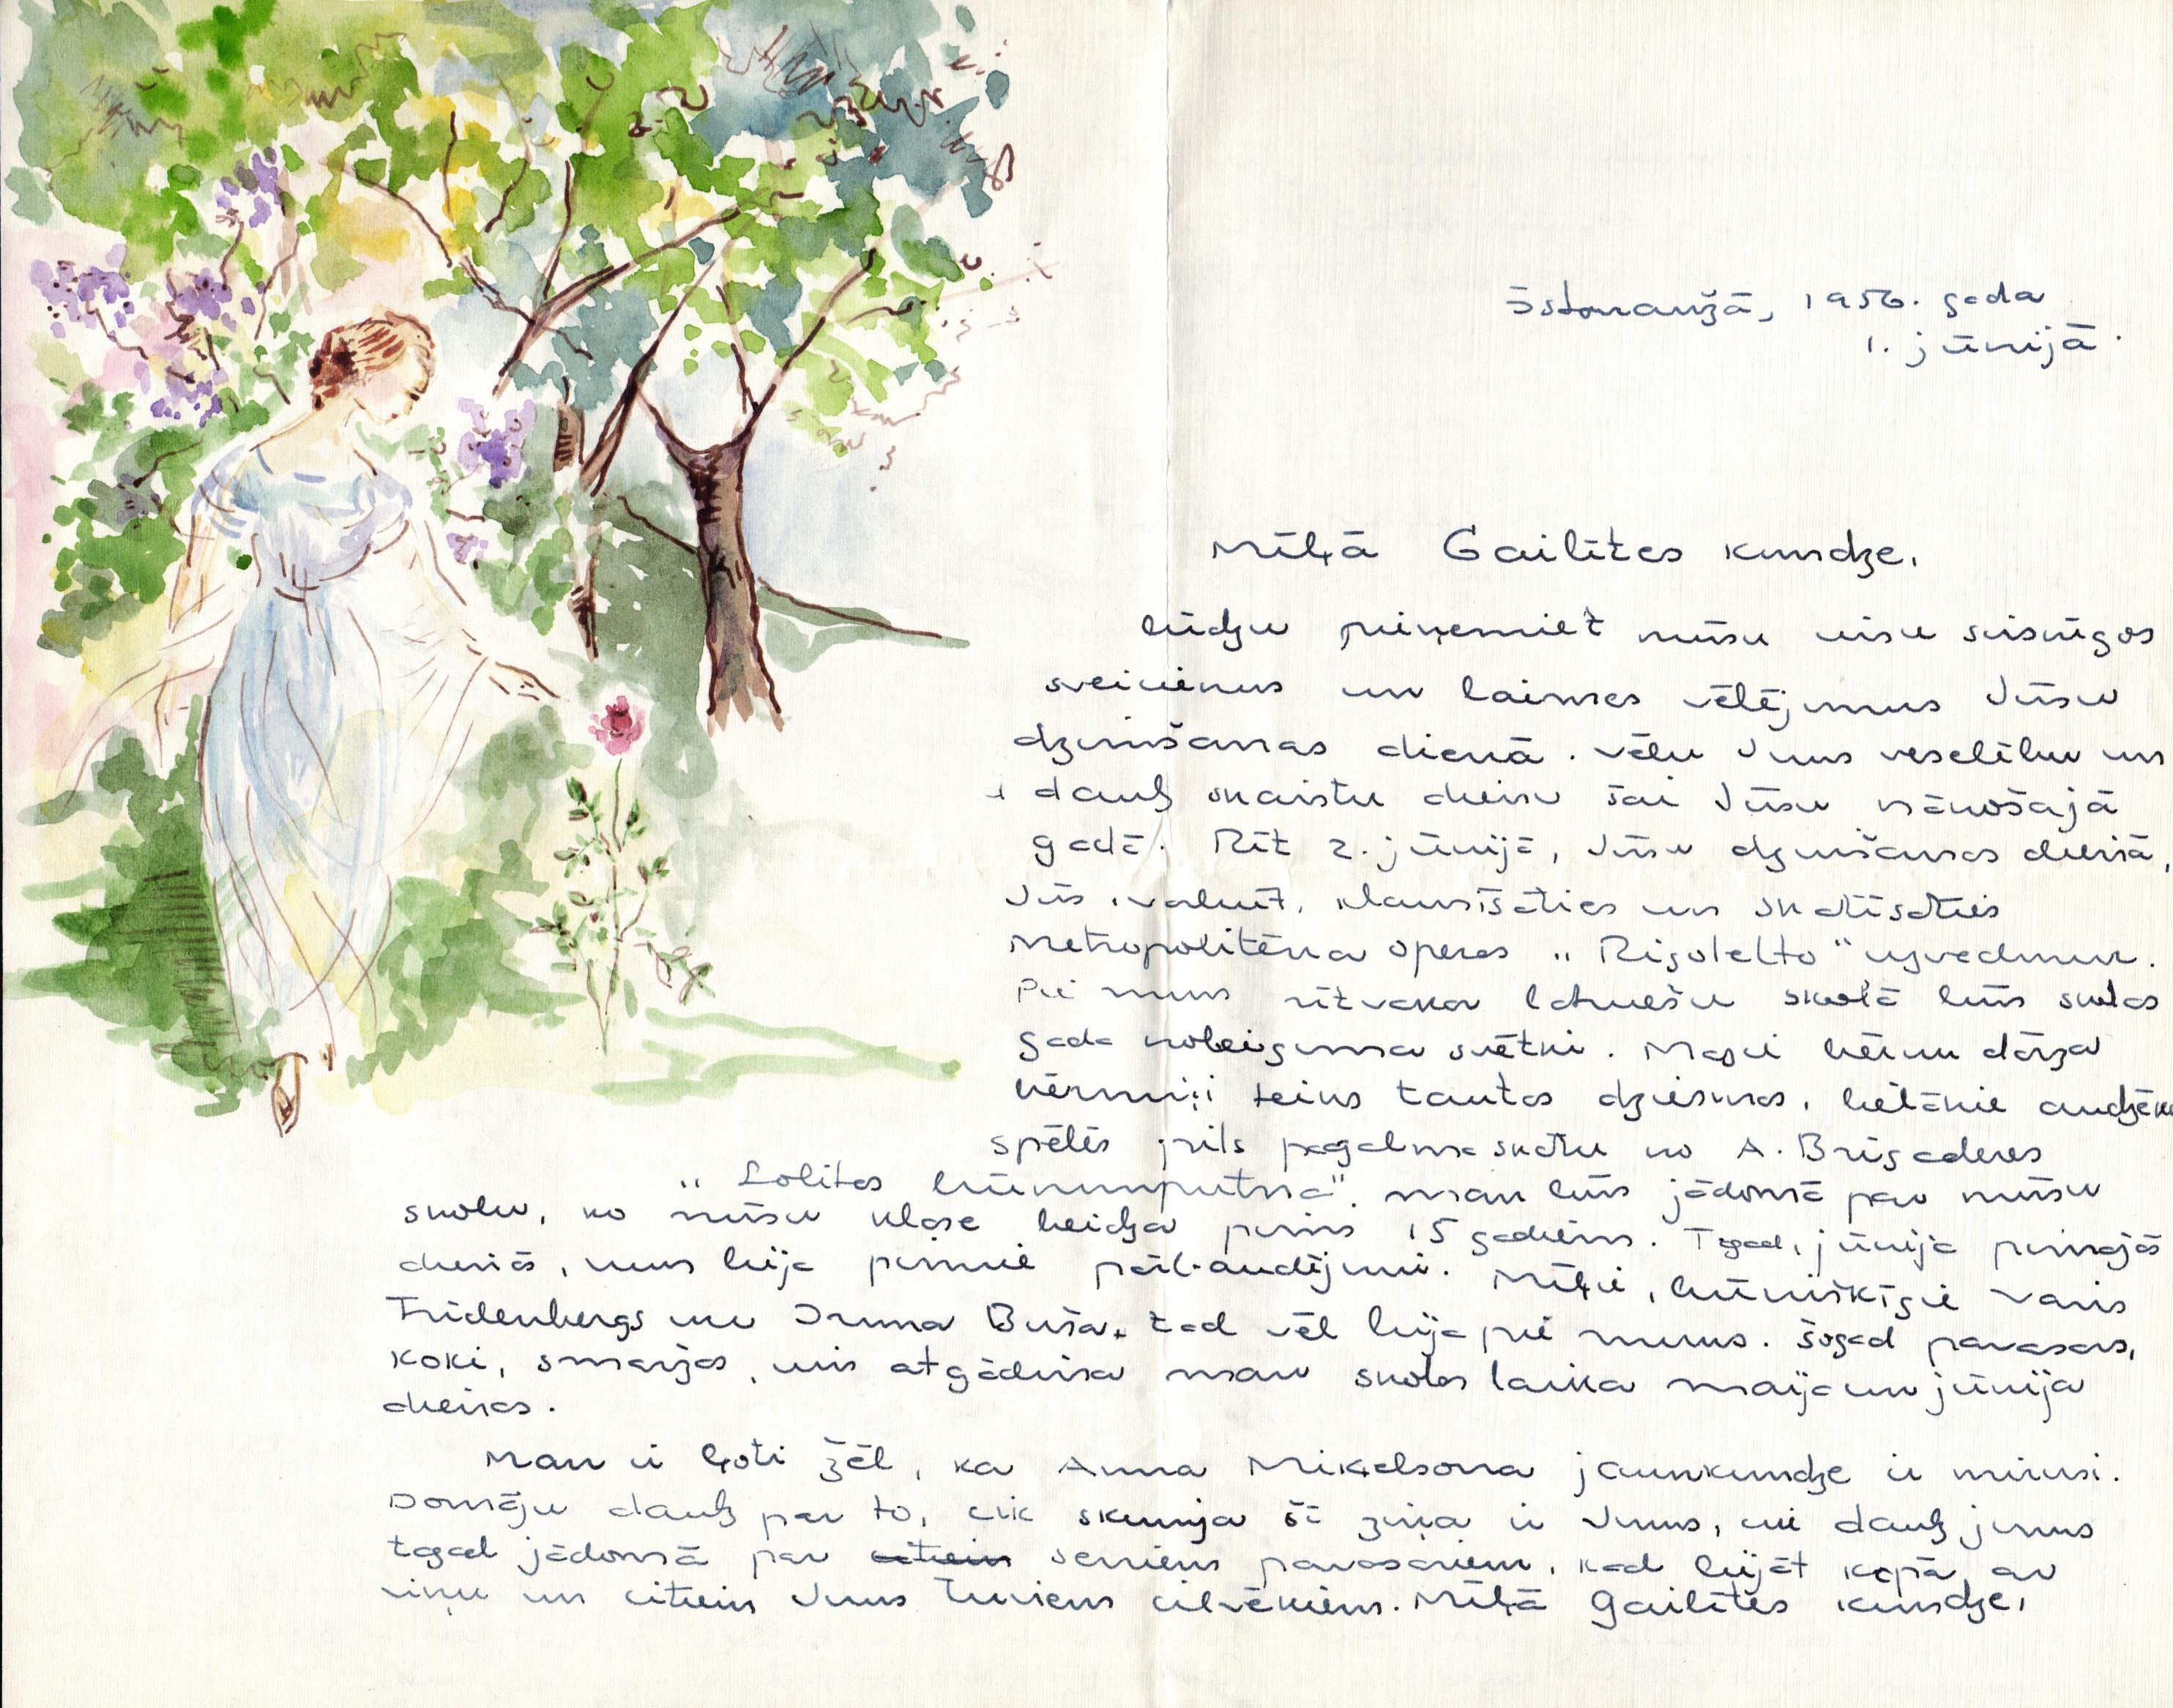 Īstoranžā, 1956. gada
1. jūnijā.
Mīļā Gailītes kundze,
lūdzu pieņemiet mūsu visu sirsnīgos
sveicienus un laimes vēlējumus Jūsu
dzimšanas dienā. Vēlu Jums veselību un
daudz skaistu dienu šai Jūsu nākošajā
gadā. Rīt 2. jūnijā, Jūsu dzimšanas dienā,
Jūs, varbūt, klausīsāties un skatīsāties
Metropolitēna operas „Rigoletto" uzvedumu.
Pie mums rītvakar latviešu skolā būs skolas
gada nobeiguma svētki. Mazie bērnu dārza
bērniņi teiks tautas dziesmas, lielākie audzēkņi
spēlēs pils pagalma skatu no A. Brigaderes
„Lolitas brīnumputna". Man būs jādomā par mūsu
skolu, ko mūsu klase beidza pirms 15 gadiem. Tagad, jūnija pirmajās
dienās, mums bija pirmie pārbaudījumi. Mīļie, brīnišķīgie Varis
Frīdenbergs un Irma Buša tad vēl bija pie mums. Šogad pavasaris,
koki, smaržas, viss atgādina man skolas laika maija un jūnija
dienas.
Man ir ļoti žēl, ka Anna Miķelsona jaunkundze ir mirusi.
Domāju daudz par to, cik skumja šī ziņa ir Jums, cik daudz jums
tagad jādomā par citiem seniem pavasariem, kad bijāt kopā ar
viņu un citiem Jums tuviem cilvēkiem. Mīļā Gailītes kundze,